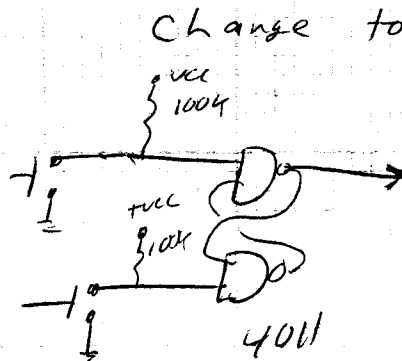 Change to
vcc
100K
+vcc
100K
4011